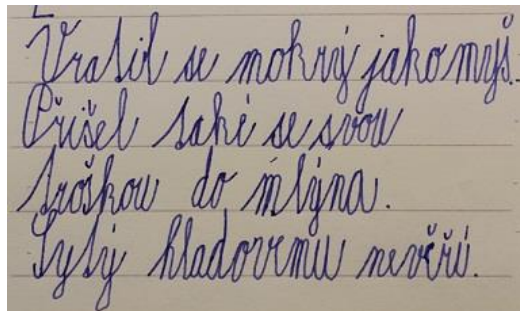 Vrátil se mokrý jako myš.
Přišel také se svou
troškou do mlýna.
Sytý hladovému nevěří.